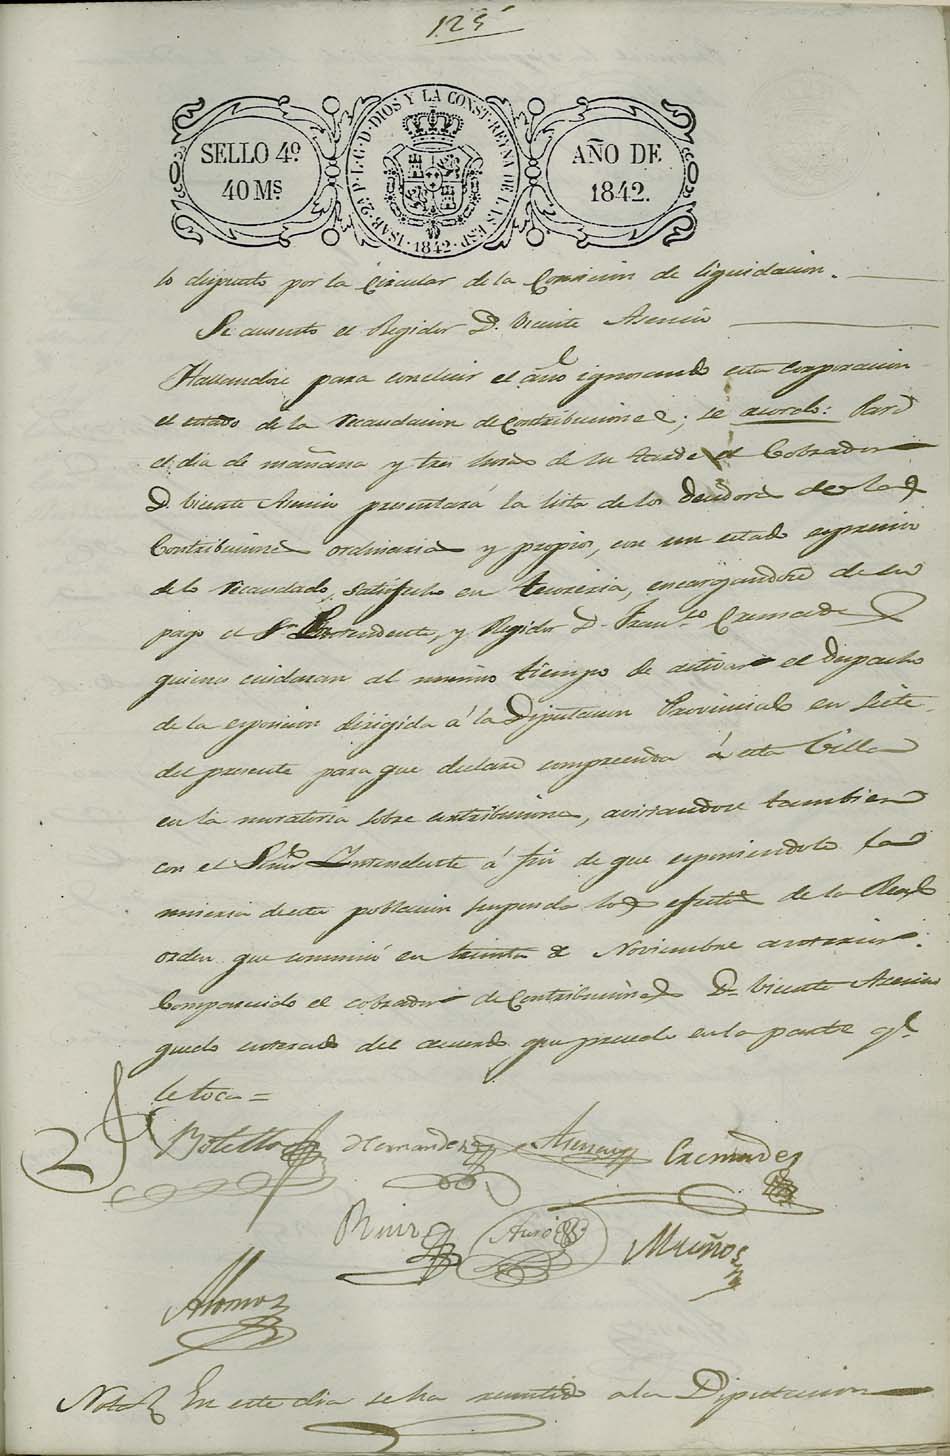 125
SELLO 4º
40 Ms.
ISAB. 2ª P. L. G. D. DIOS Y LA CONST. REYNA DE LAS ESP.
1842
AÑO DE
1842.
lo dispuesto por la Circular de la Comision de liquidacion.
Se ausentó el Regidor D. Vicente Asencio
Hallandose para concluir el año ignorando esta Corporacion
el estado de la recaudacion de Contribuciones; se acordó: Para
el dia de mañana y tres horas de su tarde el Cobrador
D. Vicente Asencio presentará la lista de los deudores de las
Contribuciones ordinarias y propios, con un estado espresivo
de lo recaudado, satisfecho en tesoreria, encargandose de su
pago el Sr. Presidente, y Regidor D. Franco. Cremades
quienes cuidaran al mismo tiempo de activar el despacho
de la esposicion dirigida á la Diputacion Provincial en siete
del presente para que declare comprendida á esta Villa
en la moratoria sobre contribuciones, avistandose tambien
con el Señor Intendente á fin de que esponiendole la
miseria de esta poblacion suspenda los efectos de la Real
orden que comunicó en treinta de Noviembre anterior.
Comparecido el cobrador de Contribuciones Dn. Vicente Asencio
quedó enterado del acuerdo que precede en la parte qe.
le toca =
Botella Hernandez Asencio Cremades
Ruiz Asno Muños
Alonso
Nota En este dia se ha remitido a la Diputacion